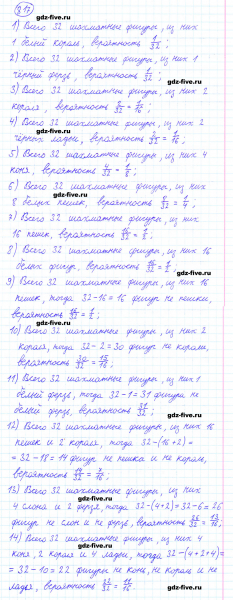 817
1) Всего 32 шахматные фигуры, из них
1 белый король, вероятность 1/32;
2) Всего 32 шахматные фигуры, из них 1
чёрный ферзь, вероятность 1/32;
3) Всего 32 шахматные фигуры, из них 2
короля, вероятность 2/32 = 1/16;
4) Всего 32 шахматные фигуры, из них 2
чёрных ладьи, вероятность 2/32 = 1/16;
5) Всего 32 шахматные фигуры, из них 4
коня, вероятность 4/32 = 1/8;
6) Всего 32 шахматные фигуры, из них
8 белых пешек, вероятность 8/32 = 1/4;
7) Всего 32 шахматные фигуры, из них
16 пешек, вероятность 16/32 = 1/2;
8) Всего 32 шахматные фигуры, из них 16
белых фигур, вероятность 16/32 = 1/2;
9) Всего 32 шахматные фигуры, из них 16
пешек, тогда 32-16=16 фигур не пешки,
вероятность 16/32 = 1/2;
10) Всего 32 шахматные фигуры, из них 2
короля, тогда 32-2=30 фигур не короли,
вероятность 30/32 = 15/16;
11) Всего 32 шахматные фигуры, из них 1
белый ферзь, тогда 32-1=31 фигура не
белый ферзь, вероятность 31/32;
12) Всего 32 шахматные фигуры, из них 16
пешек и 2 короля, тогда 32-(16+2)=
=32-18=14 фигур не пешка и не король,
вероятность 14/32 = 7/16;
13) Всего 32 шахматные фигуры, из них
4 слона и 2 ферзя, тогда 32-(4+2)=32-6=26
фигур не слон и не ферзь, вероятность 26/32 = 13/16;
14) Всего 32 шахматные фигуры, из них 4
коня, 2 короля и 4 ладьи, тогда 32-(4+2+4)=
=32-10=22 фигуры не конь, не король и не
ладья, вероятность 22/32 = 11/16
gdz-five.ru